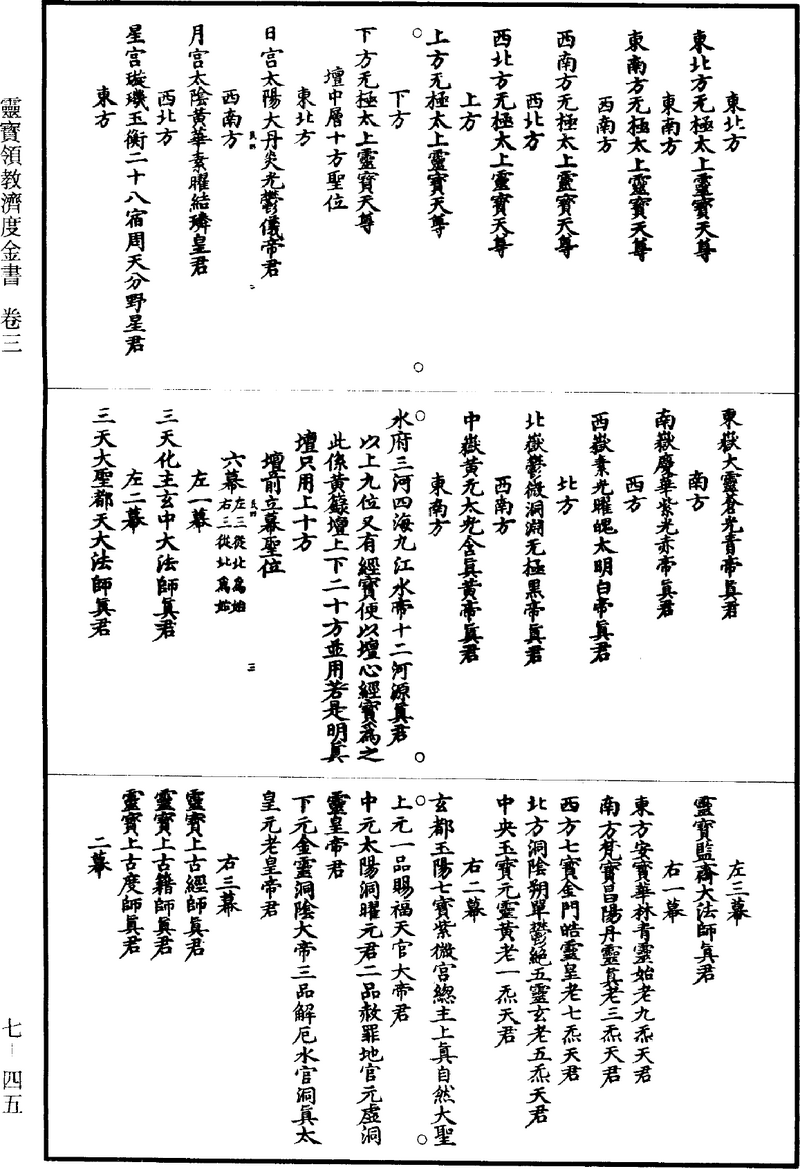 東北方
東北方无極太上靈寶天尊
東南方
東南方无極太上靈寶天尊
西南方
西南方无極太上靈寶天尊
西北方
西北方无極太上靈寶天尊
上方
上方无極太上靈寶天尊
下方
下方无極太上靈寶天尊
壇中層十方聖位
東北方
日宮太陽大丹炎光鬱儀帝君
西南方
月宮太陰黃華素曜結璘皇君
西北方
星宮璇璣玉衡二十八宿周天分野星君
東方
東嶽大靈蒼光青帝眞君
南方
南嶽慶華紫光赤帝眞君
西方
西嶽素光曜魄太明白帝眞君
北方
北嶽鬱微洞淵无極黑帝眞君
西南方
中嶽黃元太光含眞黃帝眞君
東南方
水府三河四海九江水帝十二河源眞君
以上九位又有經寶便以壇心經寶爲之
此係黃籙壇上下二十方並用若是明眞
壇只用上十方
壇前立幕聖位
六幕左三從北爲始右三從北爲始
左一幕
三天化主玄中大法師眞君
左二幕
三天大聖都天大法師眞君
左三幕
靈寶監齋大法師眞君
右一幕
東方安寶華林青靈始老九炁天君
南方梵寶昌陽丹靈眞老三炁天君
西方七寶金門皓靈皇老七炁天君
北方洞陰朔單鬱絕五靈玄老五炁天君
中央玉寶元靈黃老一炁天君
右二幕
玄都玉陽七寶紫微宮總主上眞自然大聖
上元一品賜福天官大帝君
中元太陽洞曜元君二品赦罪地官元虛洞
靈皇帝君
下元金靈洞陰大帝三品解厄水官洞眞太
皇元老皇帝君
右三幕
靈寶上古經師眞君
靈寶上古籍師眞君
靈寶上古度師眞君
二幕
靈寶領教濟度金書 卷三
七-四五